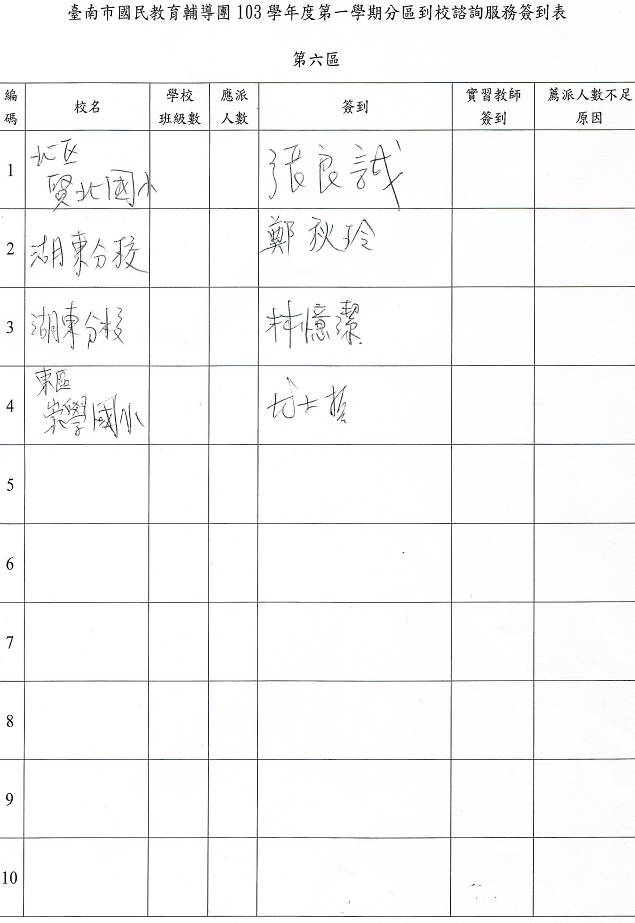 臺南市國民教育輔導團 103 學年度第一學期分區到校諮詢服務簽到表
第六區
編碼 校名 學校班級數 應派人數 簽到 實習教師簽到 薦派人數不足原因
1 北区 賢北國小 張良誠
2 湖東分校 鄭秋玲
3 湖東分校 林憶潔
4 東區 崇學國小
5
6
7
8
9
10